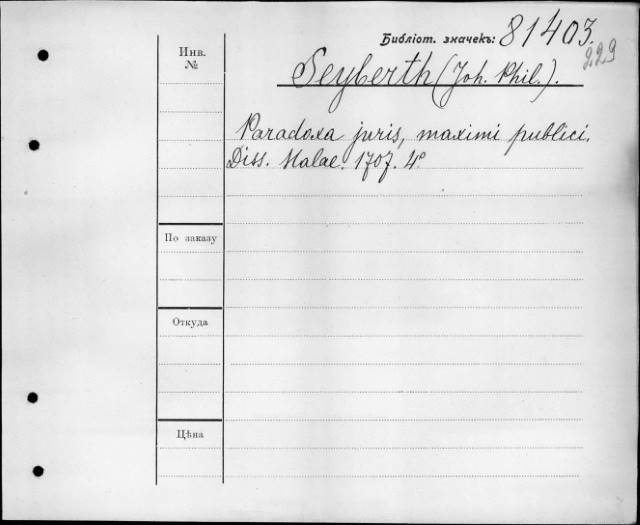 Библіот. значекъ: 81403.
229
Инв.
№
Seyberth (Joh. Phil.).
Paradoxa juris, maximi publici.
Diss. Halae. 1707. 4°
По заказу
Откуда
Цѣна